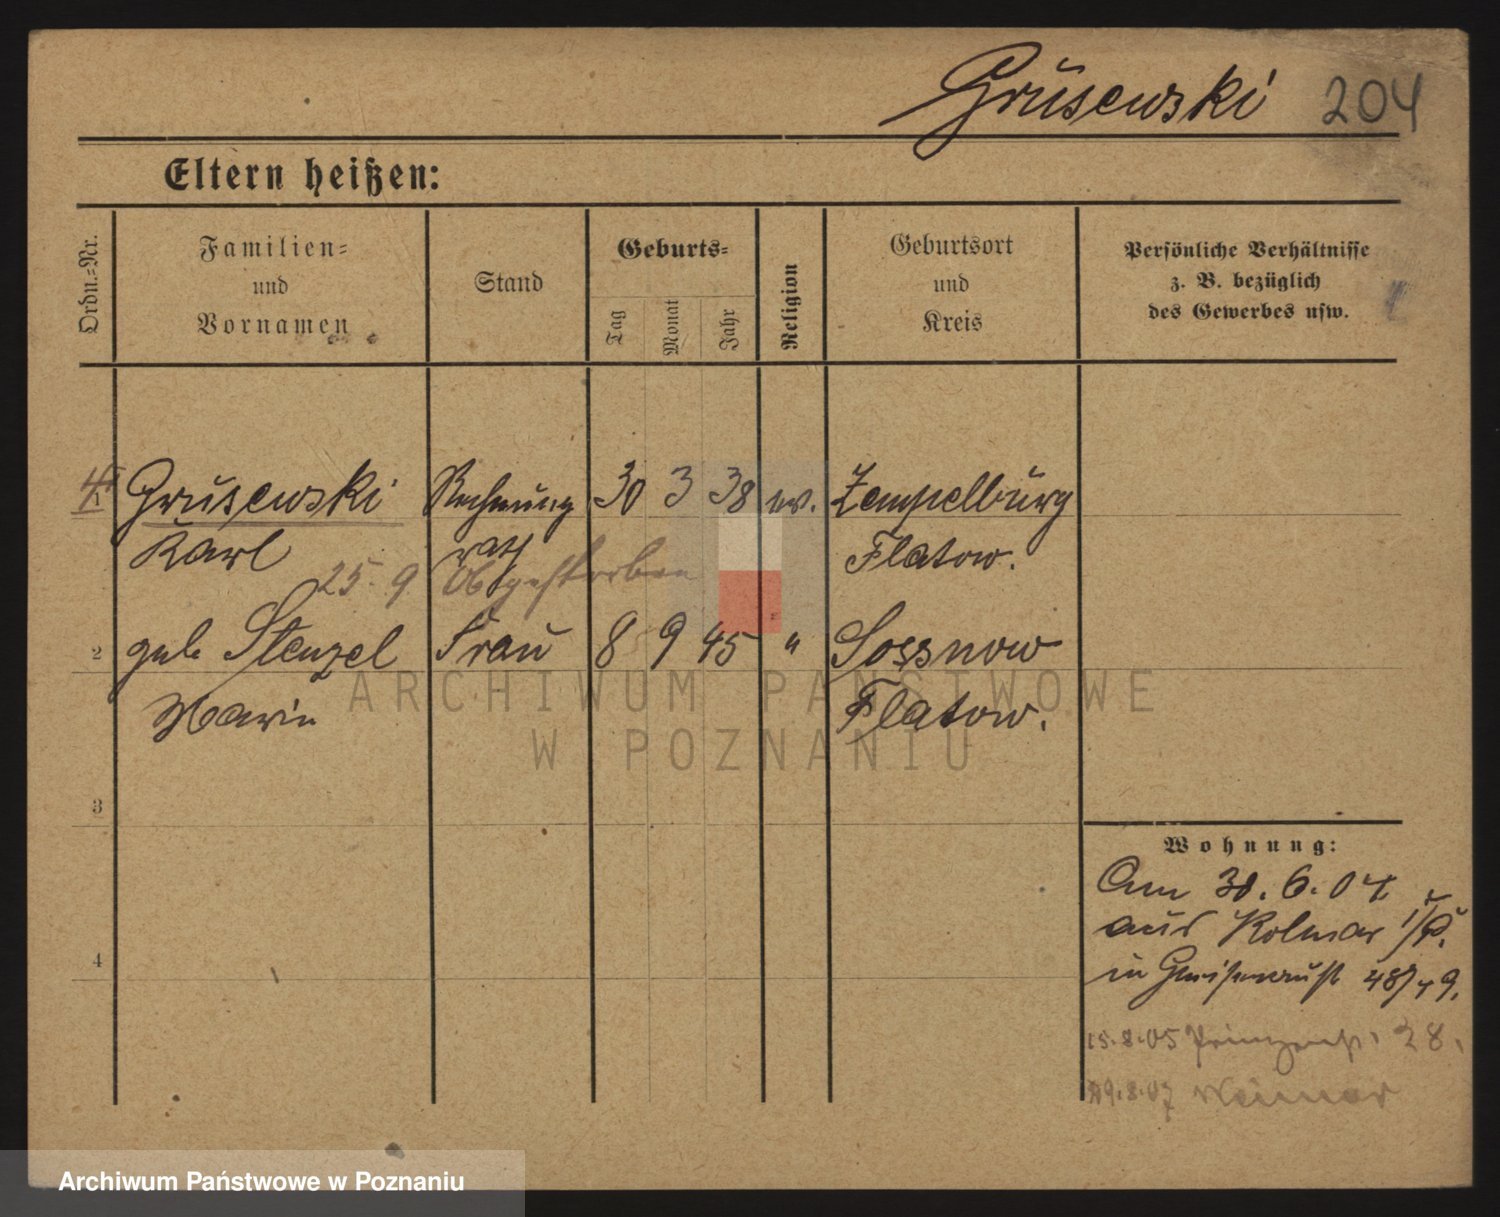 Grusewski 204
Eltern heißen:
Ordn.=Nr.
Familien=
und
Vornamen
Stand
Geburts=
Tag
Monat
Jahr
Religion
Geburtsort
und
Kreis
Persönliche Verhältnisse
z. B. bezüglich
des Gewerbes usw.
Grusewski Rechnung 30 3 38 ev. Zempelburg
Karl rath Flatow.
25. 9 
2 geb. Stenzel Frau 8 9 45 " Sossnow
Marie Flatow.
3
4
Wohnung:
Am 30. 6. 04
aus Kolmar i/P.
in Gneisenaustr 48/49.
15.8.05 Prinzenstr. 28.
8.07 Weimar
ARCHIWUM PAŃSTWOWE
W POZNANIU
Archiwum Państwowe w Poznaniu